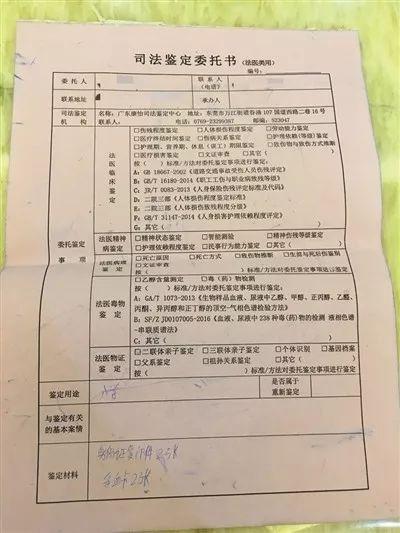 司法鉴定委托书(法医类用)
编号:
委托人 联系人(电话)
联系地址 承办人
司法鉴定机构 名称:广东康怡司法鉴定中心 地址:东莞市万江街道谷涌107国道西路二巷16号
联系人: 电话:0769-23299387 邮编:523047
委托鉴定事项
法医临床鉴定
□伤残程度鉴定 □人体损伤程度鉴定 □劳动能力鉴定
□医疗终结时间鉴定 □伤病关系鉴定 □护理依赖(等级)鉴定
□护理期、营养期、休息(误工)期限鉴定 □致伤物与致伤方式推断
□医疗损害鉴定 □文证审查 □其它( )
按( )标准/方法对委托鉴定事项进行鉴定:
A: GB 18667-2002《道路交通事故受伤人员伤残评定》
B: GB/T 16180-2014《职工工伤与职业病致残等级》
C: JR/T 0083-2013《人身保险伤残评定标准及代码》
D: 二院三部《人体损伤程度鉴定标准》
E: 二院三部《人体损伤致残程度分级》
F: GB/T 31147-2014《人身损害护理依赖程度评定》
G: 其它( )
法医精神病鉴定
□精神状态鉴定 □智能测验 □精神伤残等级鉴定
□护理程度鉴定 □民事行为能力鉴定 □其它( )
法医病理鉴定
□死亡原因 □死亡方式 □致伤物推断 □生前与死后伤鉴别
□文证审查 按( )标准/方法对委托鉴定事项进行鉴定
法医毒物鉴定
□乙醇含量测定 □毒(药)物检测
按( )标准/方法对委托鉴定事项进行鉴定:
A: GA/T 1073-2013《生物样品血液、尿液中乙醇、甲醇、正丙醇、乙醛、
丙酮、异丙醇和正丁醇的顶空-气相色谱检验方法》
B: SF/Z JD0107005-2016《血液、尿液中238种毒(药)物的检测 液相色谱
-串联质谱法》
C: 其它( )
法医物证鉴定
□二联体亲子鉴定 □三联体亲子鉴定 □个体识别 □基因档案
□父系鉴定 □祖孙关系鉴定 □其它( )
按( )标准/方法对委托鉴定事项进行鉴定
鉴定用途 是否属于重新鉴定
与鉴定有关的基本案情
鉴定材料